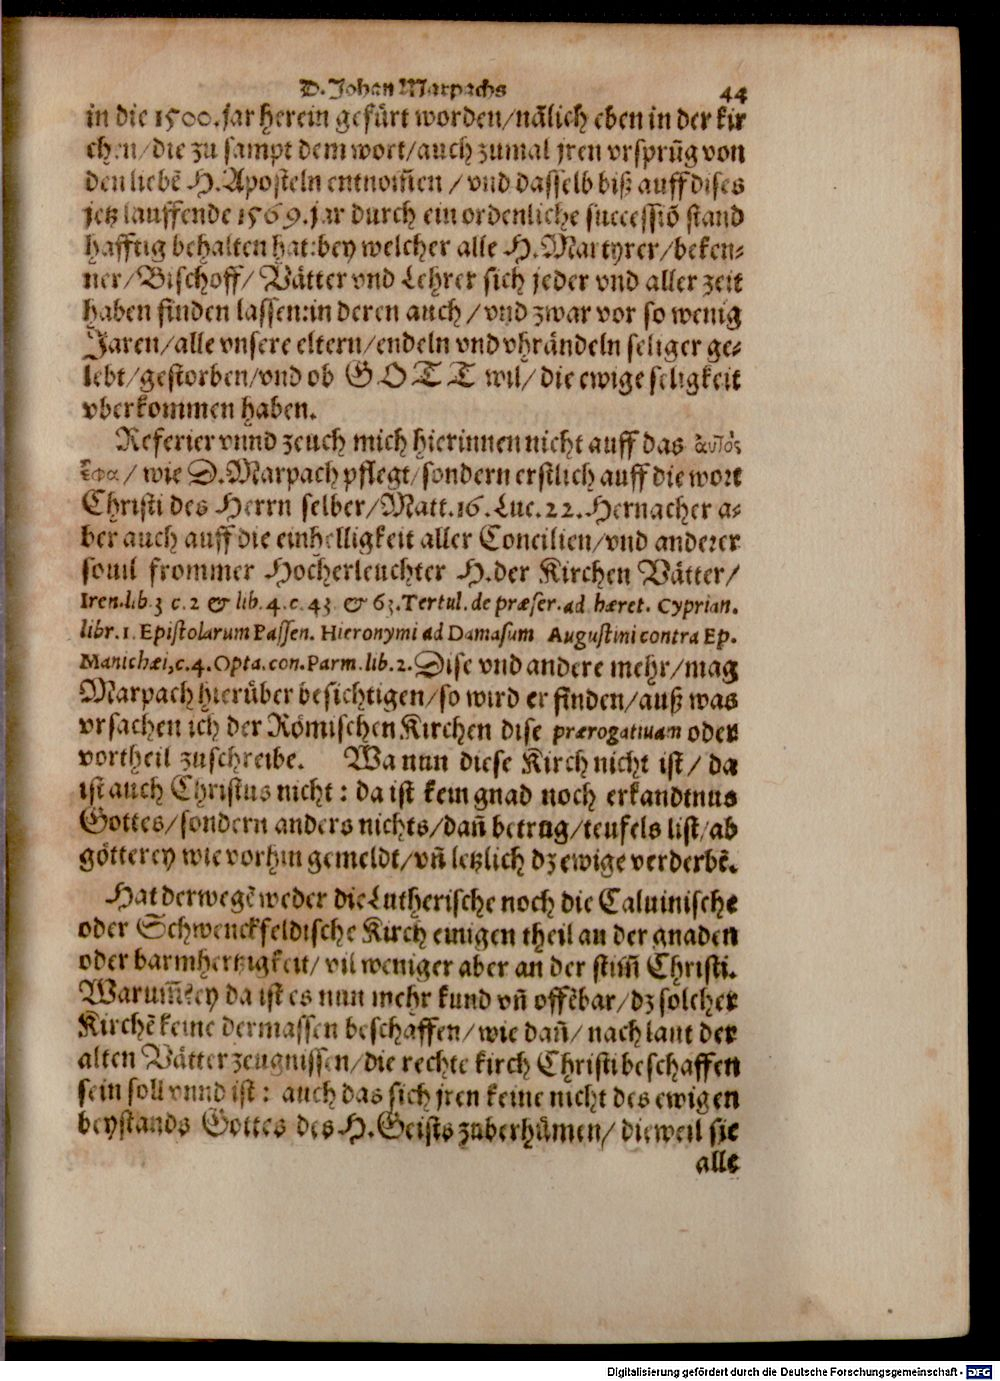 D. Johan Marpachs 44
in die 1500. jar herein gefürt worden/nãlich eben in der kir
chen/die zu sampt dem wort/auch zumal jren vrsprũg von
den liebẽ H. Aposteln entnom̃en/vnd dasselb biß auff dises
jetz lauffende 1569. jar durch ein ordenliche successiõ stand
hafftig behalten hat:bey welcher alle H. Martyrer/beken-
ner/Bischoff/Vätter vnd Lehrer sich jeder vnd aller zeit
haben finden lassen:in deren auch/vnd zwar vor so wenig
Jaren/alle vnsere eltern/endeln vnd vhrändeln seliger ge-
lebt/gestorben/vnd ob GOTT wil/die ewige seligkeit
vberkommen haben.
Referier vnnd zeuch mich hierinnen nicht auff das ἀυτὸς
ἔφα/wie D. Marpach pflegt/sondern erstlich auff die wort
Christi des Herrn selber/Matt. 16. Luc. 22. Hernacher a-
ber auch auff die einhelligkeit aller Concilien/vnd anderer
souil frommer Hocherleuchter H. der Kirchen Vätter/
Iren. lib. 3 c. 2 & lib. 4. c. 43 & 63. Tertul. de præser. ad hæret. Cyprian.
libr. 1. Epistolarum Passen. Hieronymi ad Damasum Augustini contra Ep.
Manichæi, c. 4. Opta. con. Parm. lib. 2. Dise vnd andere mehr/mag
Marpach hierüber besichtigen/so wird er finden/auß was
vrsachen ich der Römischen Kirchen dise prærogatiuam oder
vortheil zuschreibe. Wa nun diese Kirch nicht ist/da
ist auch Christus nicht: da ist kein gnad noch erkandtnus
Gottes/sondern anders nichts/dañ betrug/teufels list/ab
götterey wie vorhin gemeldt/vñ letzlich dz ewige verderbẽ.
Hat derwegẽ weder die Lutherische noch die Caluinische
oder Schwenckfeldische Kirch einigen theil an der gnaden
oder barmhertzigkeit/vil weniger aber an der stim̃ Christi.
Warum̃ ey da ist es nun mehr kund vñ offẽbar/dz solcher
Kirchẽ keine dermassen beschaffen/wie dañ/nach laut der
alten Vätter zeugnissen/die rechte kirch Christi beschaffen
sein soll vnnd ist: auch das sich jren keine nicht des ewigen
beystands Gottes des H. Geists zuberhümen/dieweil sie
alle
Digitalisierung gefördert durch die Deutsche Forschungsgemeinschaft - DFG